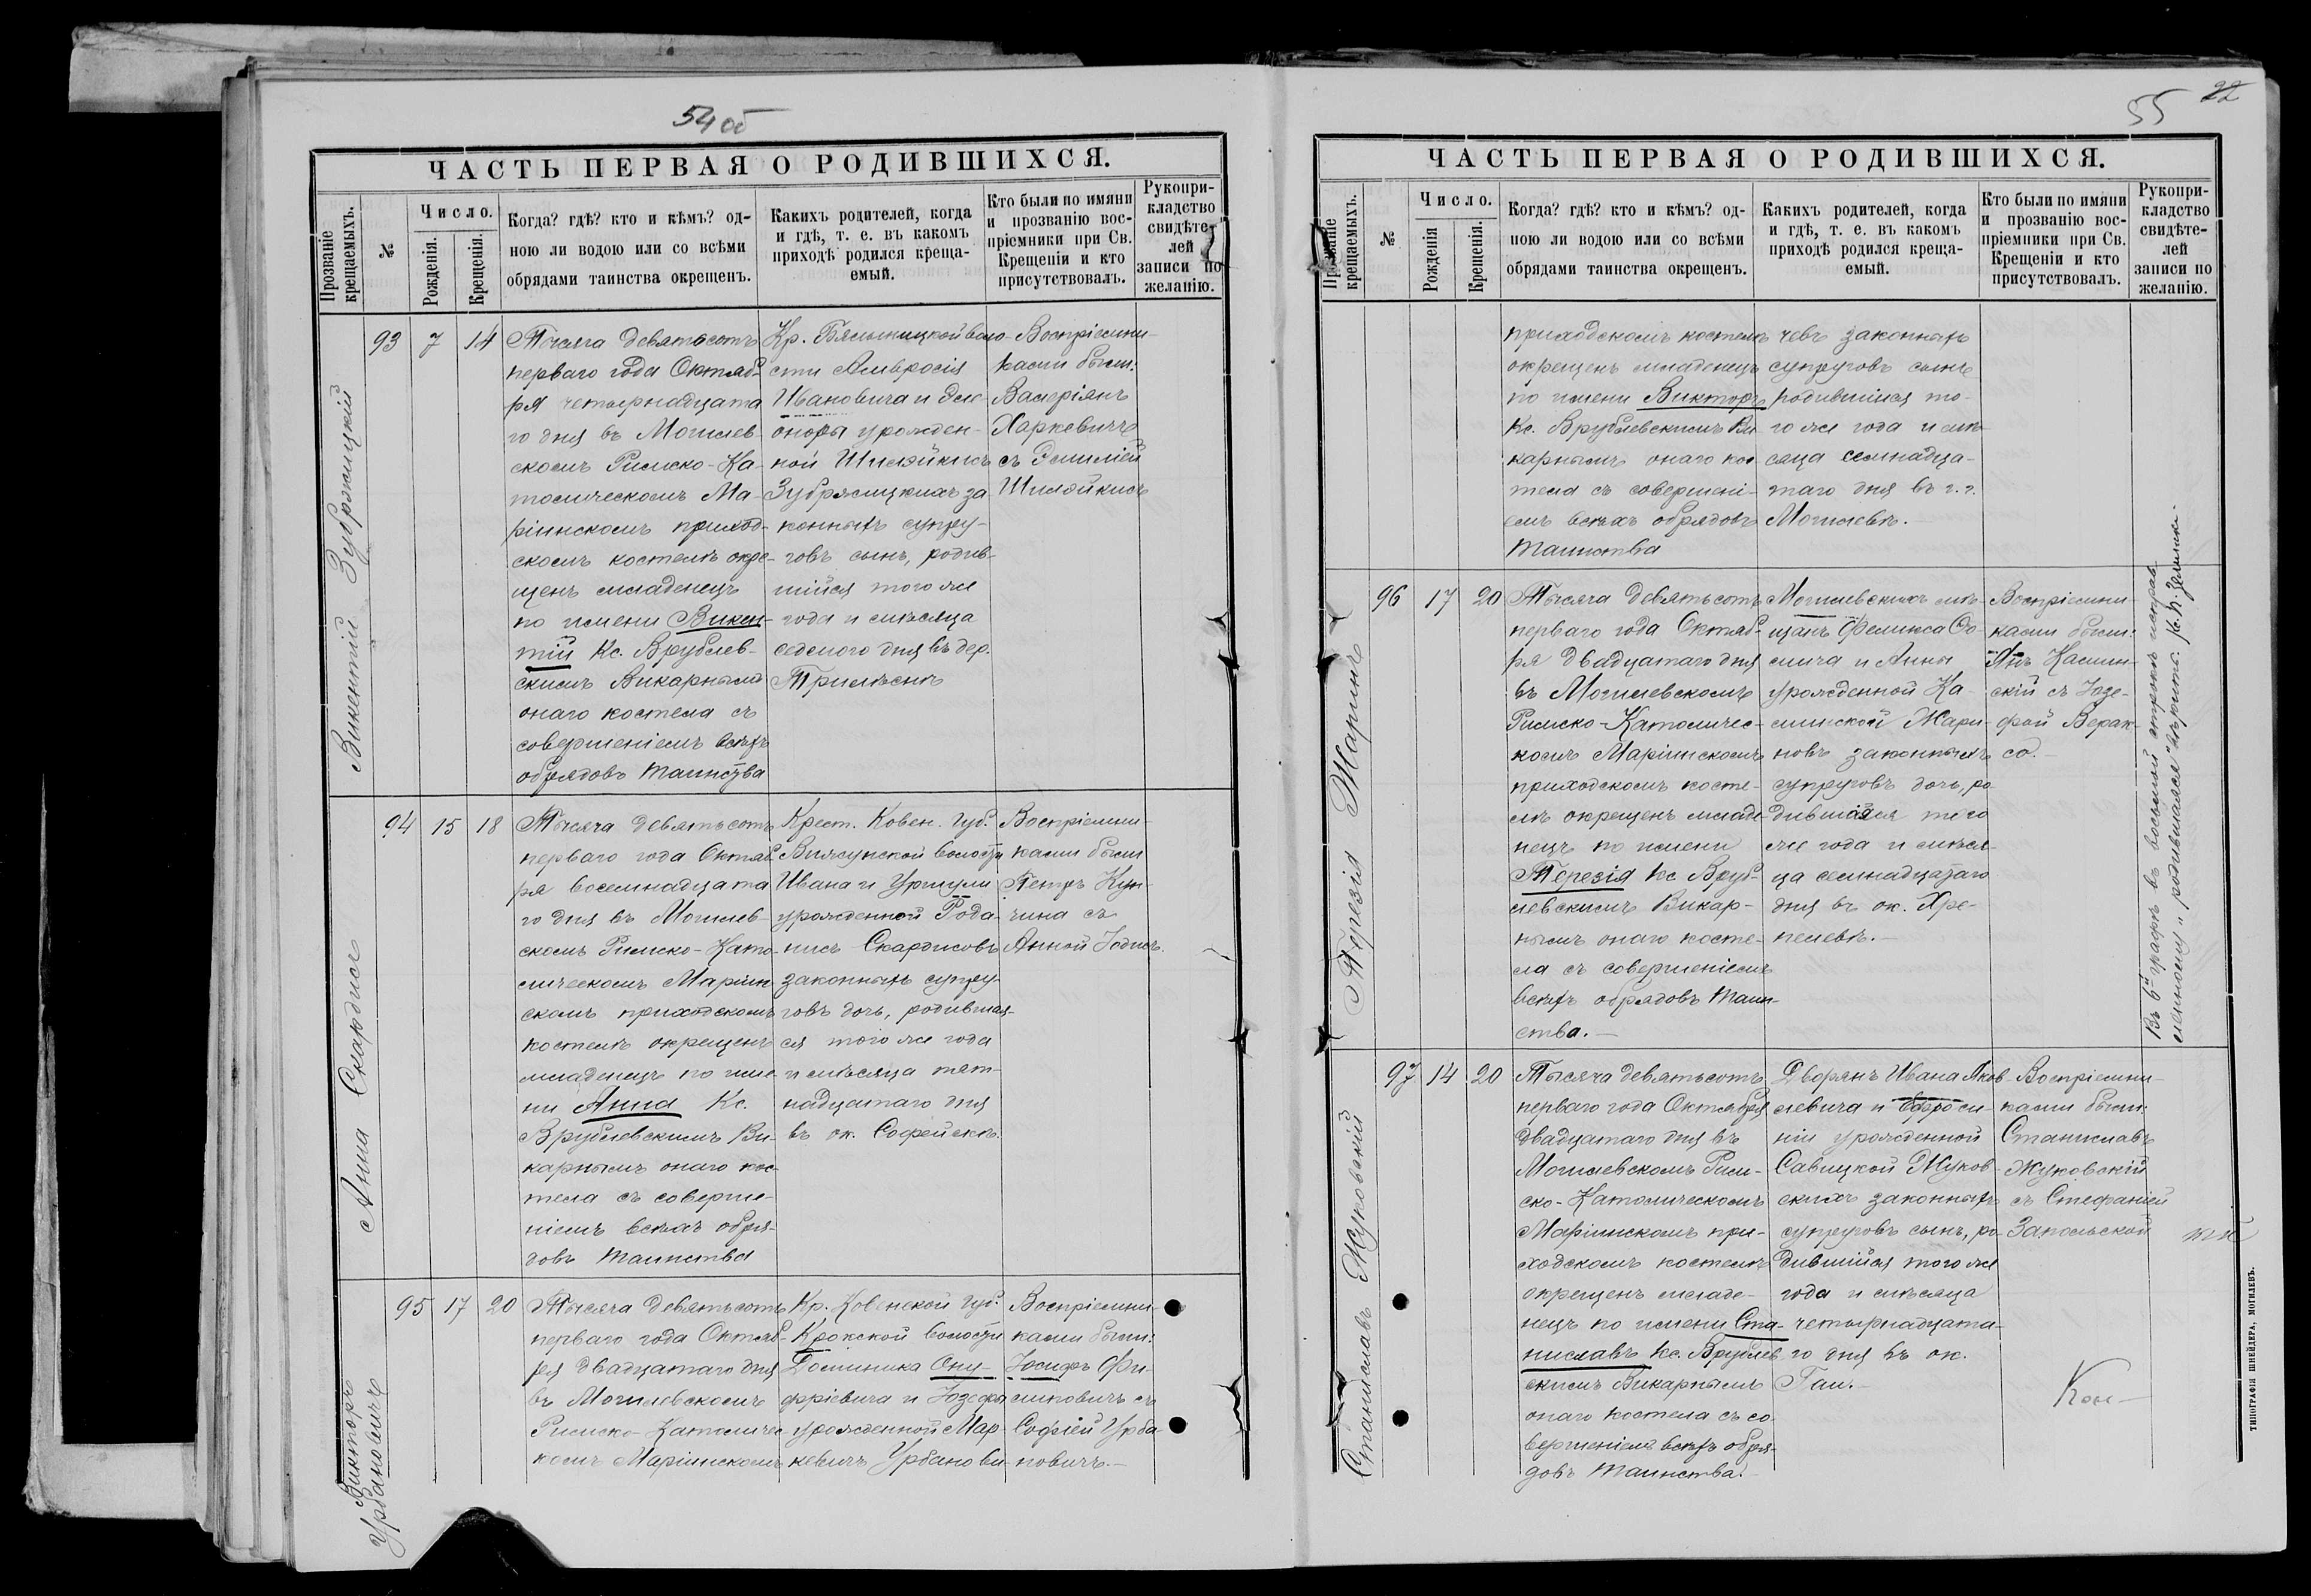 54 об
ЧАСТЬ ПЕРВАЯ О РОДИВШИХСЯ.
Прозваніе крещаемыхъ.
№
Число.
Рожденія.
Крещенія.
Когда? гдѣ? кто и кѣмъ? од-
ною ли водою или со всѣми
обрядами таинства окрещенъ.
Какихъ родителей, когда
и гдѣ, т. е. въ какомъ
приходѣ родился креща-
емый.
Кто были по имяни
и прозванію вос-
пріемники при Св.
Крещеніи и кто
присутствовалъ.
Рукопри-
кладство
свидѣте-
лей
записи по
желанію.
Викентій Зубржицкій
93 7 14
Тысяча девятьсотъ
перваго года Октяб-
ря четырнадцата
го дня въ Могилев-
скомъ Римско-Ка-
толическомъ Ма-
ріинскомъ приход-
скомъ костелѣ окре-
щенъ младенецъ
по имени Викен-
тій Кс. Врублев-
скимъ Викарнымъ
онаго костела съ
совершеніемъ всѣхъ
обрядовъ таинства
Кр. Бялыницкой воло-
сти Амвросія
Ивановича и Эле-
оноры урожден-
ной Шилэйкисъ
Зубржицкихъ за-
конныхъ супру-
говъ сынъ, родив-
шійся того же
года и мѣсяца
седьмого дня въ дер.
Воспріемни-
ками были:
Валеріянъ
Харкевичъ
съ Эмиліей
Шилэйкисъ
Анна Скардисъ
94 15 18
Тысяча девятьсотъ
перваго года Октяб-
ря восемнадцата
го дня въ Могилев-
скомъ Римско-Като-
лическомъ Маріин
скомъ приходскомъ
костелѣ окрещенъ
младенецъ по име
ни Анна Кс.
Врублевскимъ Ви-
карнымъ онаго кос-
тела съ соверше-
ніемъ всѣхъ обря-
довъ таинства
Крест. Ковен. Губ.
волости
Ивана и Уршули
урожденной Рода-
нисъ Скардисовъ
законныхъ супру-
говъ дочь, родившая-
ся того же года
и мѣсяца пят-
надцатаго дня
въ ок. Софейскѣ.
Воспріемни-
ками были
Петръ Кун-
чина съ
Анной Іодисъ.
Викторъ
Урбановичъ
95 17 20
Тысяча девятьсотъ
перваго года Октяб-
ря двадцатаго дня
въ Могилевскомъ
Римско-Католичес-
комъ Маріинскомъ
Кр. Ковенской губ.
Крокской волости
Доминика Ону-
фріевича и Юзефы
урожденной Мар-
кевичъ Урбанови
Воспріемни-
ками были:
Іосифъ Фи-
липовичъ съ
Софіей Урба-
новичъ.—
22
55
ЧАСТЬ ПЕРВАЯ О РОДИВШИХСЯ.
Прозваніе крещаемыхъ.
№
Число.
Рожденія
Крещенія.
Когда? гдѣ? кто и кѣмъ? од-
ною ли водою или со всѣми
обрядами таинства окрещенъ.
Какихъ родителей, когда
и гдѣ, т. е. въ какомъ
приходѣ родился креща-
емый.
Кто были по имяни
и прозванію вос-
пріемники при Св.
Крещеніи и кто
присутствовалъ.
Рукопри-
кладство
свидѣте-
лей
записи по
желанію.
приходскомъ костелѣ
окрещенъ младенецъ
по имени Викторъ
Кс. Врублевскимъ Ви-
карнымъ онаго кос-
тела съ совершені-
емъ всѣхъ обрядовъ
таинства
чевъ законныхъ
супруговъ сынъ
родившійся то-
го же года и мѣ-
сяца семнадца-
таго дня въ г. г.
Могилевѣ.
Терезія Жаринъ
96 17 20
Тысяча девятьсотъ
перваго года Октяб-
ря двадцатаго дня
въ Могилевскомъ
Римско-Католичес-
комъ Маріинскомъ
приходскомъ косте-
лѣ окрещенъ младе-
нецъ по имени
Терезія Кс. Вруб-
левскимъ Викар-
нымъ онаго косте-
ла съ совершеніемъ
всѣхъ обрядовъ таин-
ства.—
Могилевскихъ мѣ-
щанъ Феликса Ѳо-
мича и Анны
урожденной Ка-
минской Жари-
новъ законныхъ
супруговъ дочь, ро
дившаяся того
же года и мѣся-
ца семнадцатаго
дня въ ок. Хре-
пелевѣ.—
Воспріемни-
ками были:
Янъ Камин-
скій съ Юзе-
фой Верак-
со.—
Въ 6й графѣ въ восьмой строкѣ исправ-
ленному „родившаяся" вѣрить. Кс. К.
Станиславъ Жуковскій
97 14 20
Тысяча девятьсотъ
перваго года Октября
двадцатаго дня въ
Могилевскомъ Рим-
ско-Католическомъ
Маріинскомъ при-
ходскомъ костелѣ
окрещенъ младе-
нецъ по имени Ста-
ниславъ Кс. Врублев
скимъ Викарнымъ
онаго костела съ со
вершеніемъ всѣхъ обря-
довъ таинства.
Дворянъ Ивана Яков-
левича и Ефроси-
ніи урожденной
Савицкой Жуков-
скихъ законныхъ
супруговъ сынъ, ро-
дившійся того же
года и мѣсяца
четырнадцата-
го дня въ ок.
Гаи.—
Воспріемни-
ками были:
Станиславъ
Жуковскій
съ Стефаніей
Запольской
Кон—
ТИПОГРАФІЯ ШНЕЙДЕРА, МОГИЛЕВЪ.